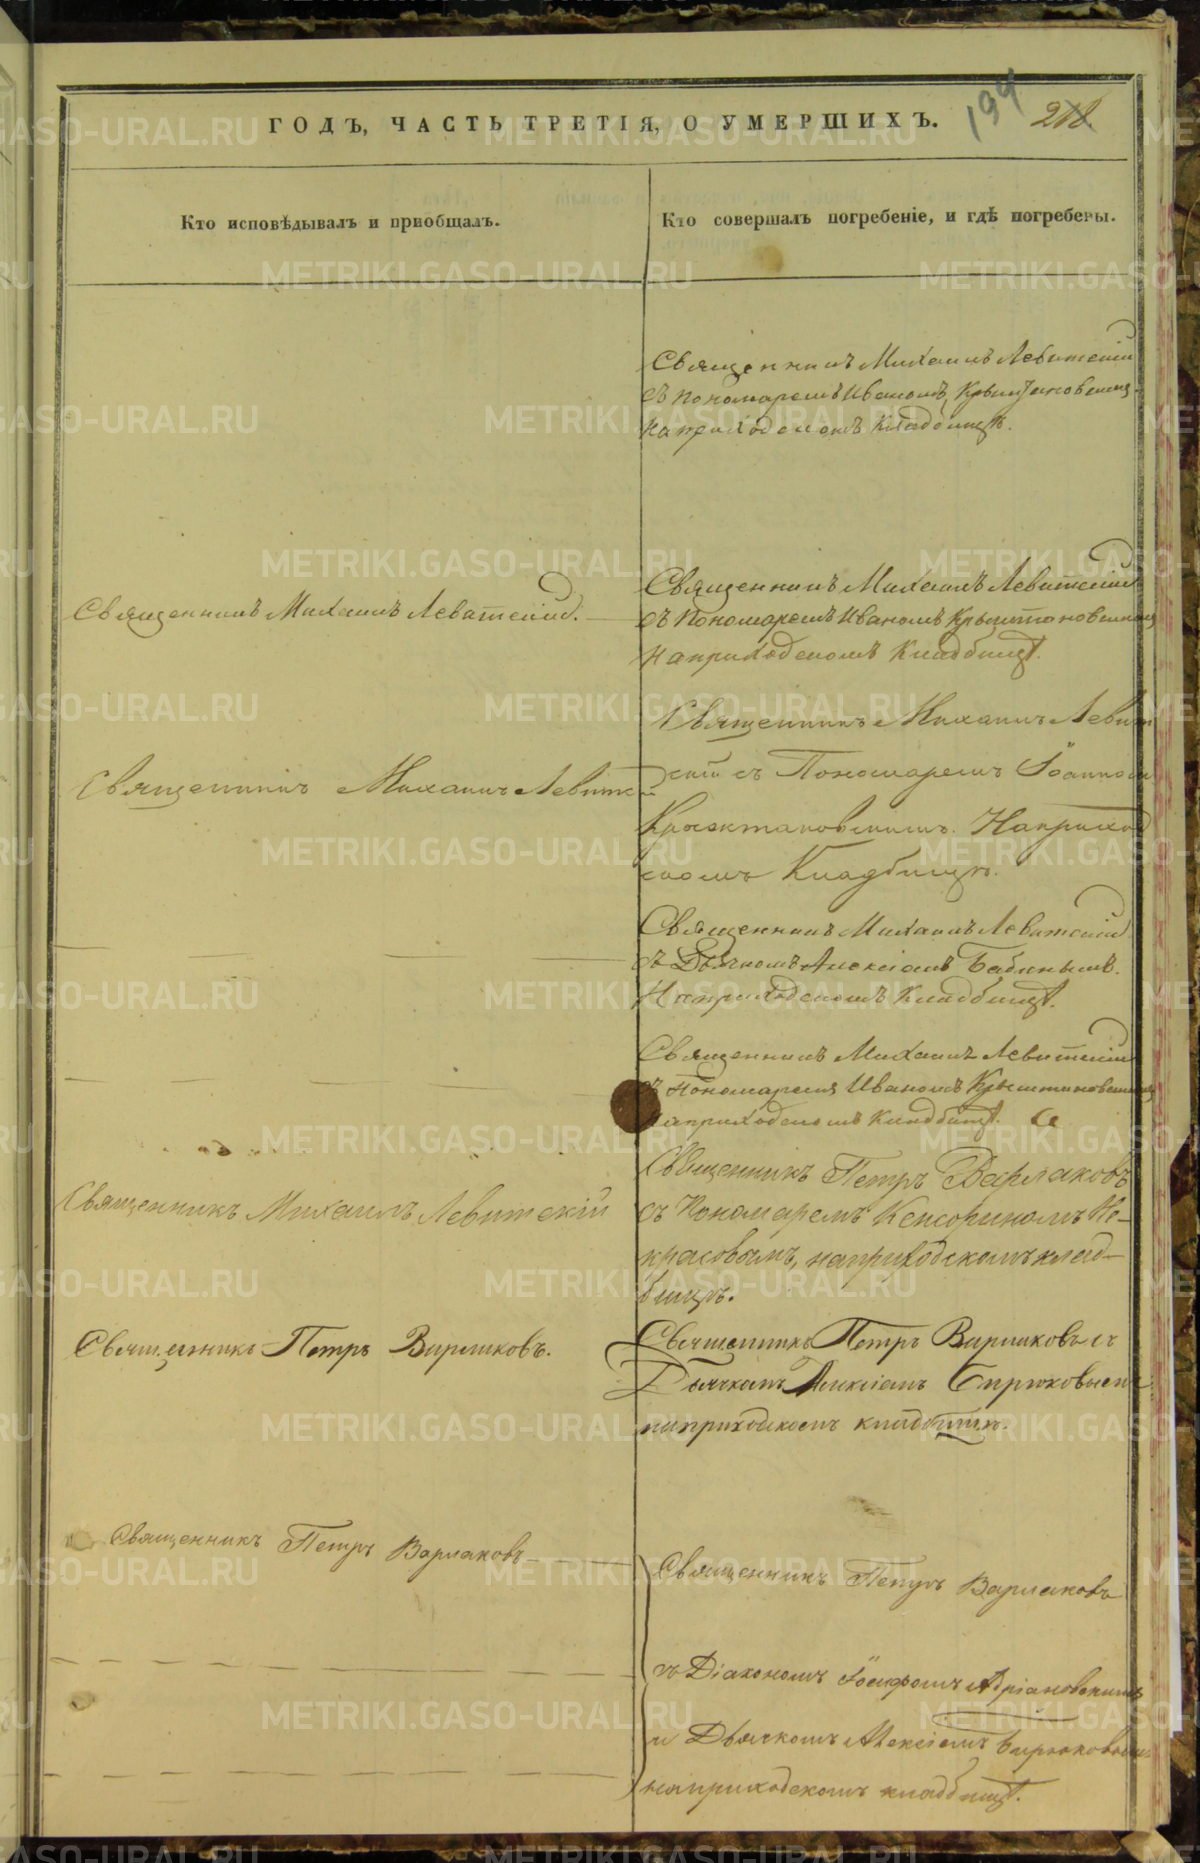 ГОДЪ, ЧАСТЬ ТРЕТІЯ, О УМЕРШИХЪ.
194 218.
Кто исповѣдывалъ и пріобщалъ.
Кто совершалъ погребеніе, и гдѣ погребены.
Священникъ Михаилъ Левитскій
съ Пономаремъ Иваномъ
на приходскомъ Кладбищѣ.
Священникъ Михаилъ Левитскій.
Священникъ Михаилъ Левитскій
съ Пономаремъ Иваномъ
На приходскомъ Кладбищѣ.
Священникъ Михаилъ Левитскій
Священникъ Михаилъ Левит
скій съ Пономаремъ Іоанномъ
На приход
скомъ Кладбищѣ.
Священникъ Михаилъ Левитскій
съ Дьячкомъ Алексіемъ Бабинымъ.
На приходскомъ Кладбищѣ.
Священникъ Михаилъ Левитскій
съ Пономаремъ Иваномъ
на приходскомъ Кладбищѣ.
Священникъ Михаилъ Левитскій
Священникъ Петръ Варлаковъ
съ Пономаремъ Кенсориномъ Не-
красовымъ, на приходскомъ клад-
бищѣ.
Священникъ Петръ Варлаковъ.
Священникъ Петръ Варлаковъ съ
Дьячкомъ Алексіемъ Бирюковымъ
на приходскомъ кладбищѣ.
Священникъ Петръ Варлаковъ
Священникъ Петръ Варлаковъ
съ Діакономъ Іосифомъ Адріановскимъ
и Дьячкомъ Алексіемъ Бирюковымъ
на приходскомъ кладбищѣ.
METRIKI.GASO-URAL.RU